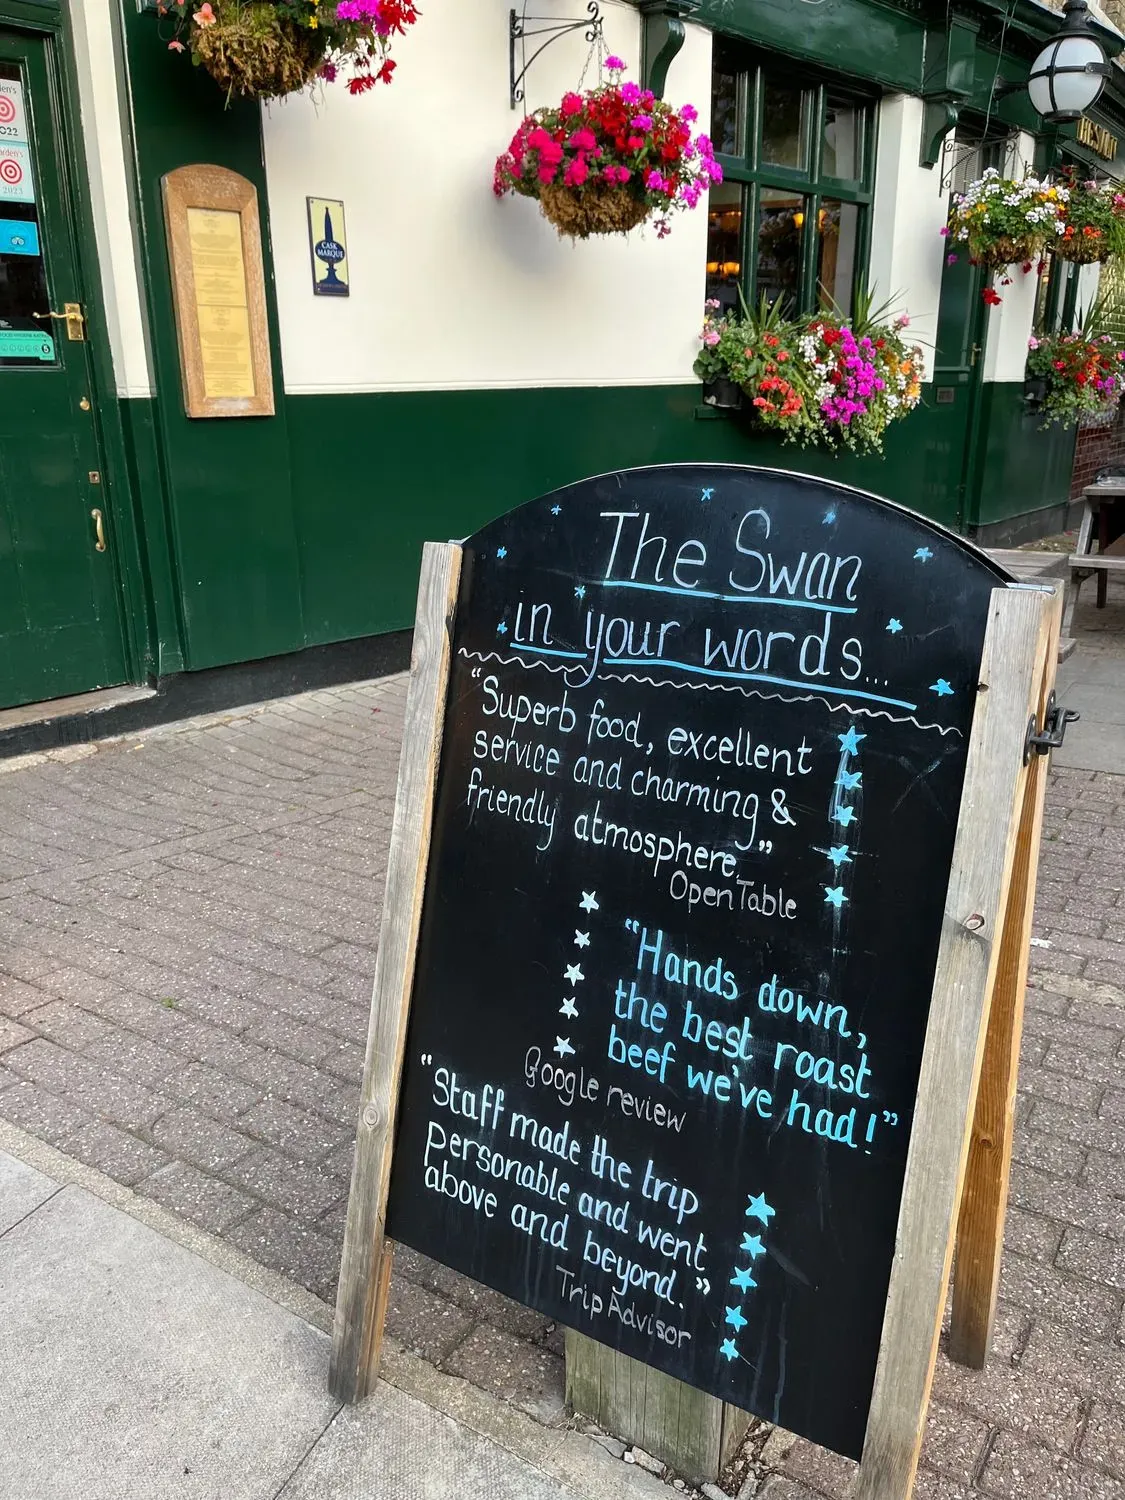 The Swan
in your words...
"Superb food, excellent
service and charming &
friendly atmosphere."
OpenTable
"Hands down,
the best roast
beef we've had!"
Google review
"Staff made the trip
personable and went
above and beyond."
TripAdvisor
CASK
MARQUE
2022
2023
THE SWAN